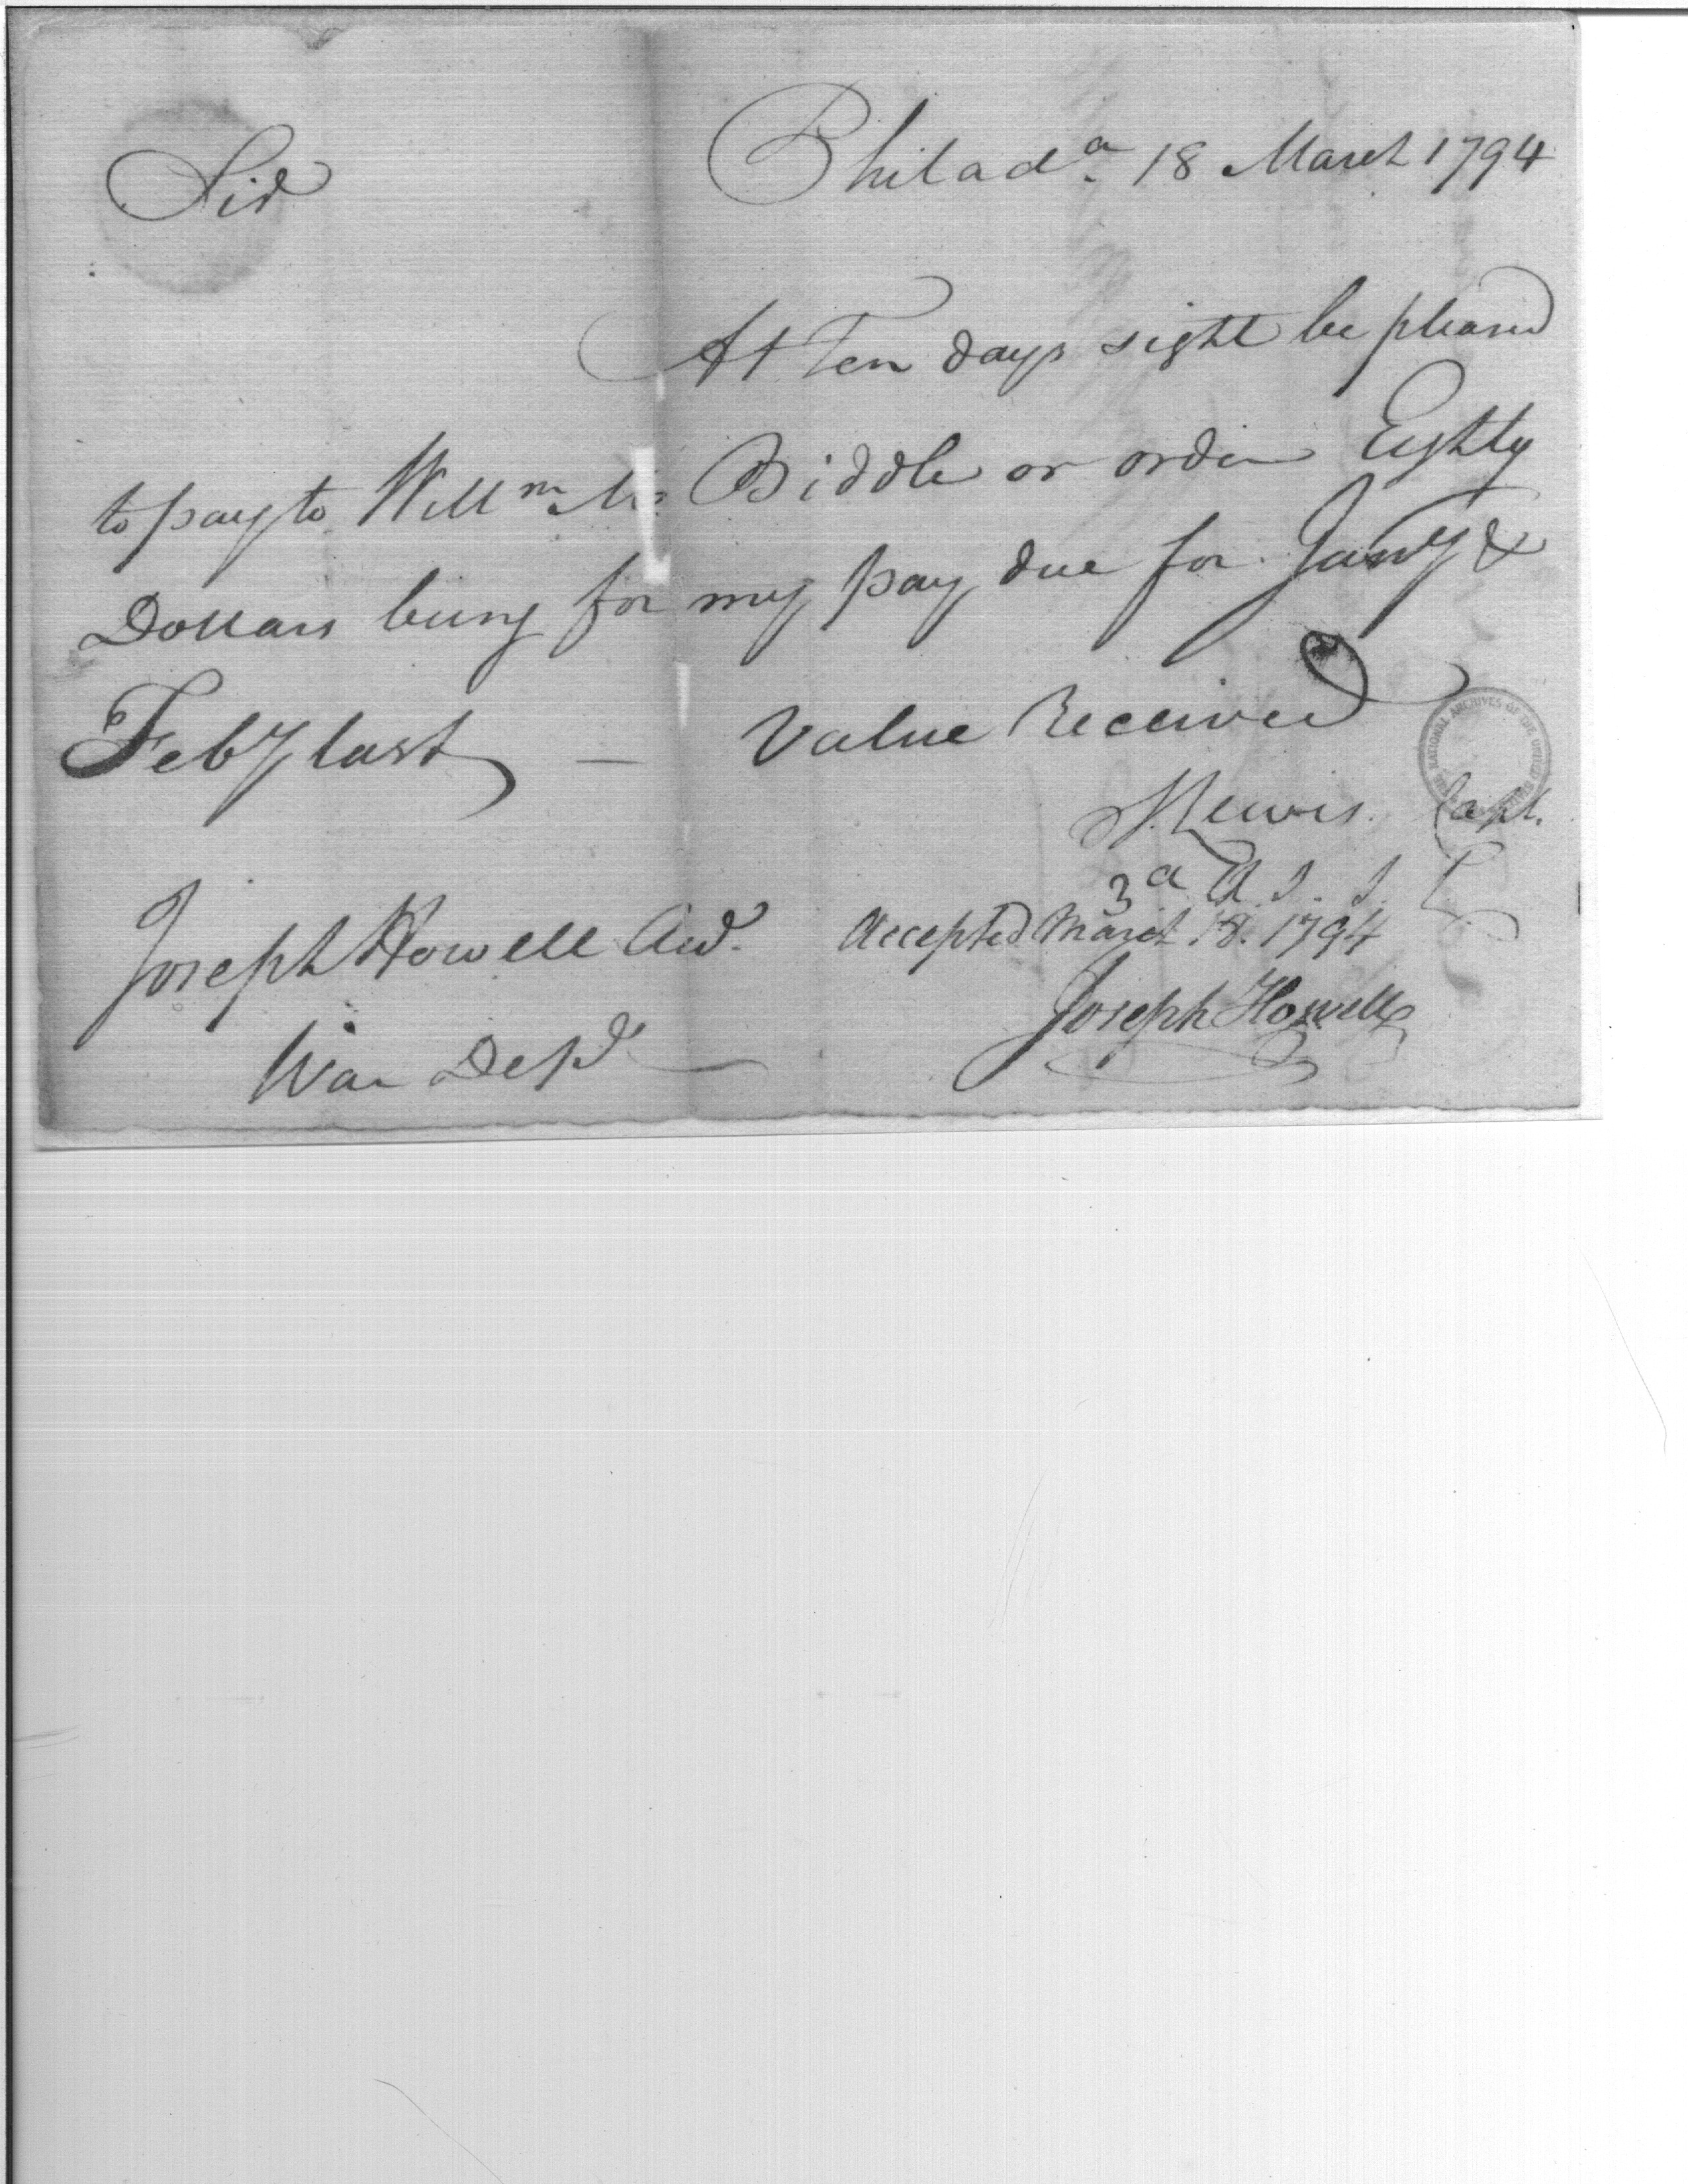 Philad.ª 18 March 1794
Sir
At Ten days sight be pleased
to pay to Will.m Mc Biddle or order Eighty
Dollars being for my pay due for Jany &
Feby last — Value Received
Lewis. Capt.
3d
Joseph Howell
Accepted March 18. 1794
War Dept
Joseph Howell
NATIONAL ARCHIVES OF THE UNITED